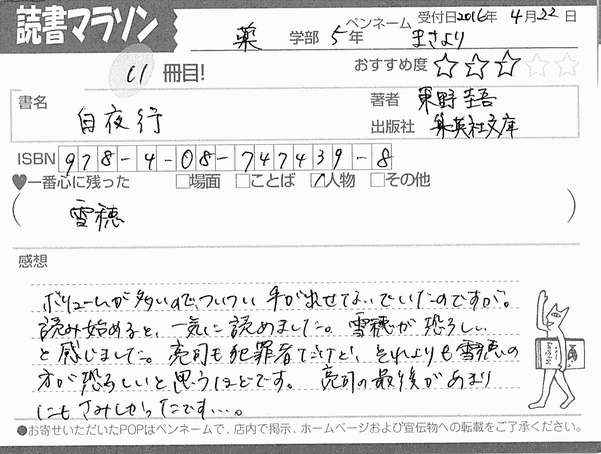 読書マラソン
ペンネーム 受付日2016年 4月22日
薬 学部 5年 まさより
冊目!
おすすめ度 ☆☆☆☆☆
書名 著者 東野圭吾
白夜行
出版社 集英社文庫
ISBN 978-4-08-747439-8
♥一番心に残った □場面 □ことば □人物 □その他
(雪穂)
感想
ボリュームが多いので、ついつい手が出せてないでいたのですが。
読み始めると、一気に読めました。雪穂が恐ろしい
と感じました。亮司も犯罪者だけど、それよりも雪穂の
方が恐ろしいと思うほどです。亮司の最後があまり
にもさみしかったです…。
●お寄せいただいたPOPはペンネームで、店内で掲示、ホームページおよび宣伝物への転載をご了承ください。